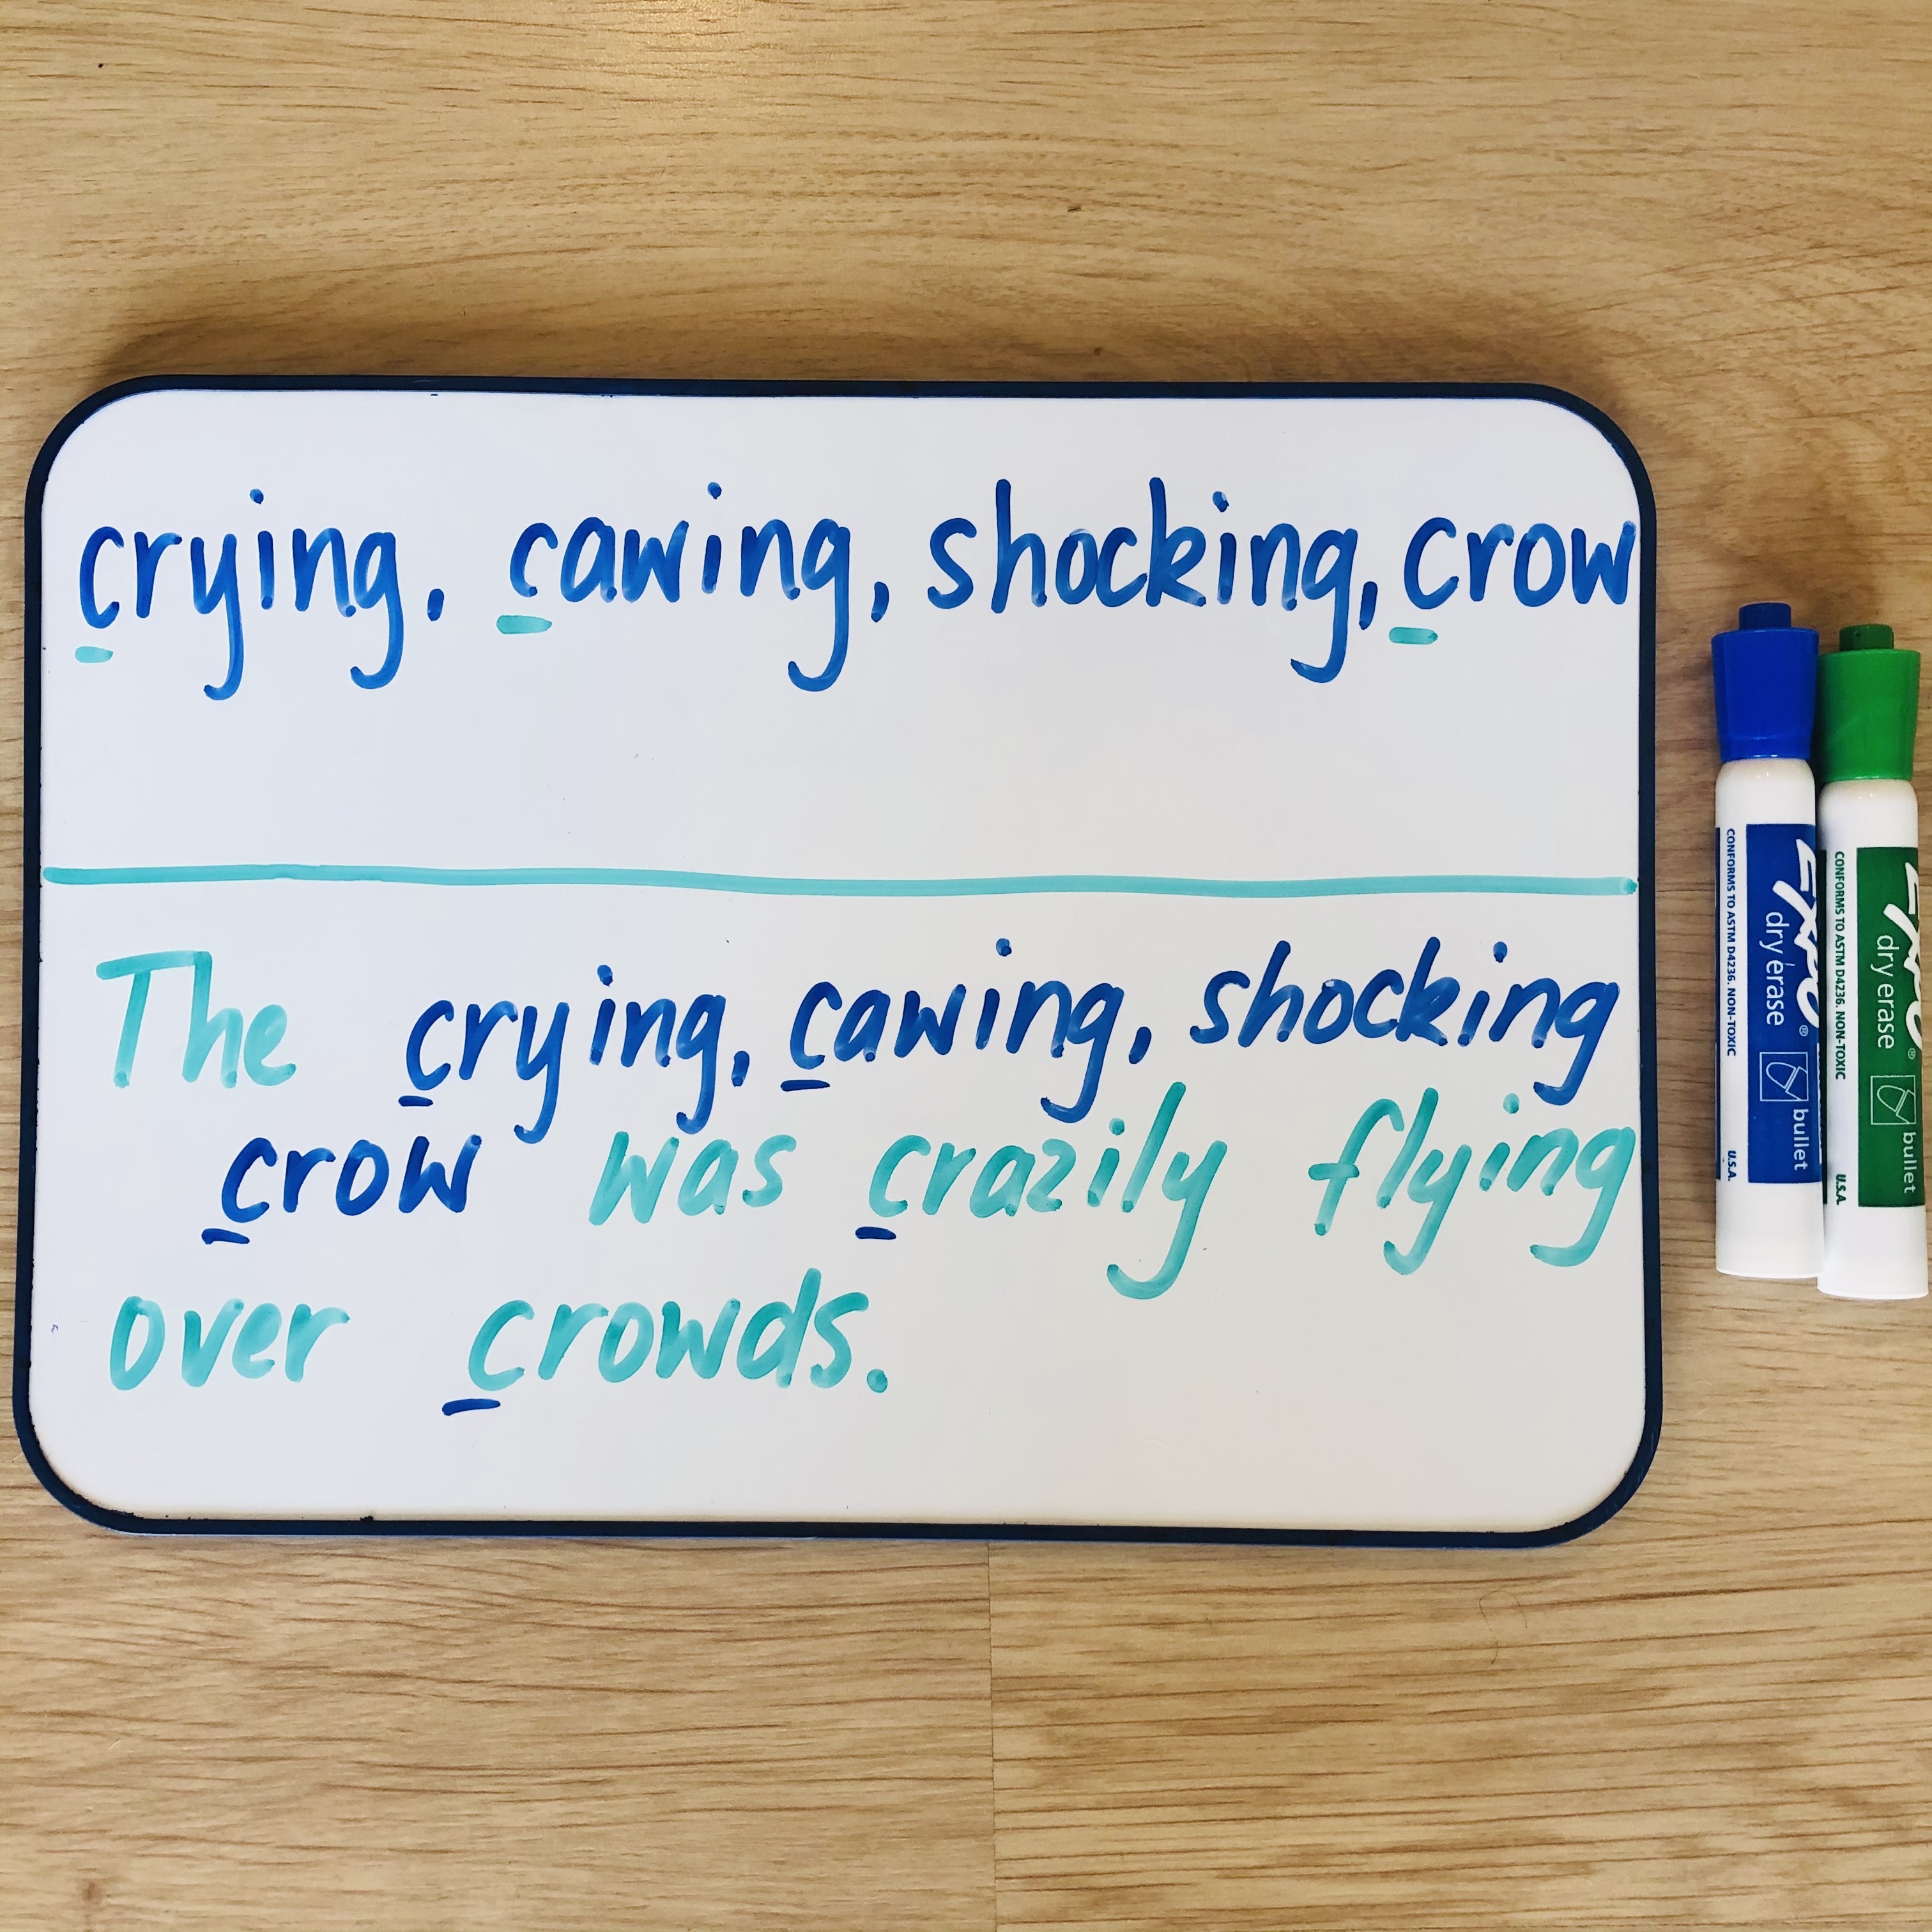 crying, cawing, shocking, crow
The crying, cawing, shocking
crow was crazily flying
over crowds.
EXPO® dry erase bullet
CONFORMS TO ASTM D4236. NON-TOXIC U.S.A.
EXPO® dry erase bullet
CONFORMS TO ASTM D4236. NON-TOXIC U.S.A.